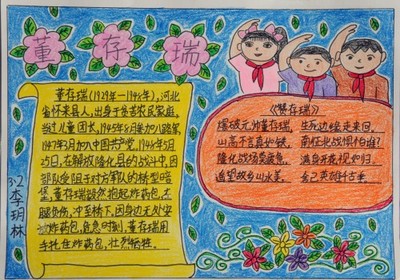 董存瑞
董存瑞(1929年一1948年),河北
省怀来县人,出身于贫苦农民家庭,
当过儿童团长,1945年8月参加八路军,
1947年3月加入中国共产党,1948年5月
25日,在解放隆化县的战斗中,因
部队受阻于对方军队的桥型暗
堡,董存瑞毅然抱起炸药包,左
腿负伤,冲至桥下,因身边无处安
放炸药包,危急时刻,董存瑞用
手托住炸药包,壮烈牺牲。
《赞存瑞》
爆破元帅董存瑞, 生死边缘走来回,
山高不言真如铁, 南征北战惧怕谁?
隆化战场蒙疲惫, 满身弄花视如归,
遥望故乡山水美, 舍己英雄千古垂
3.2李玥林